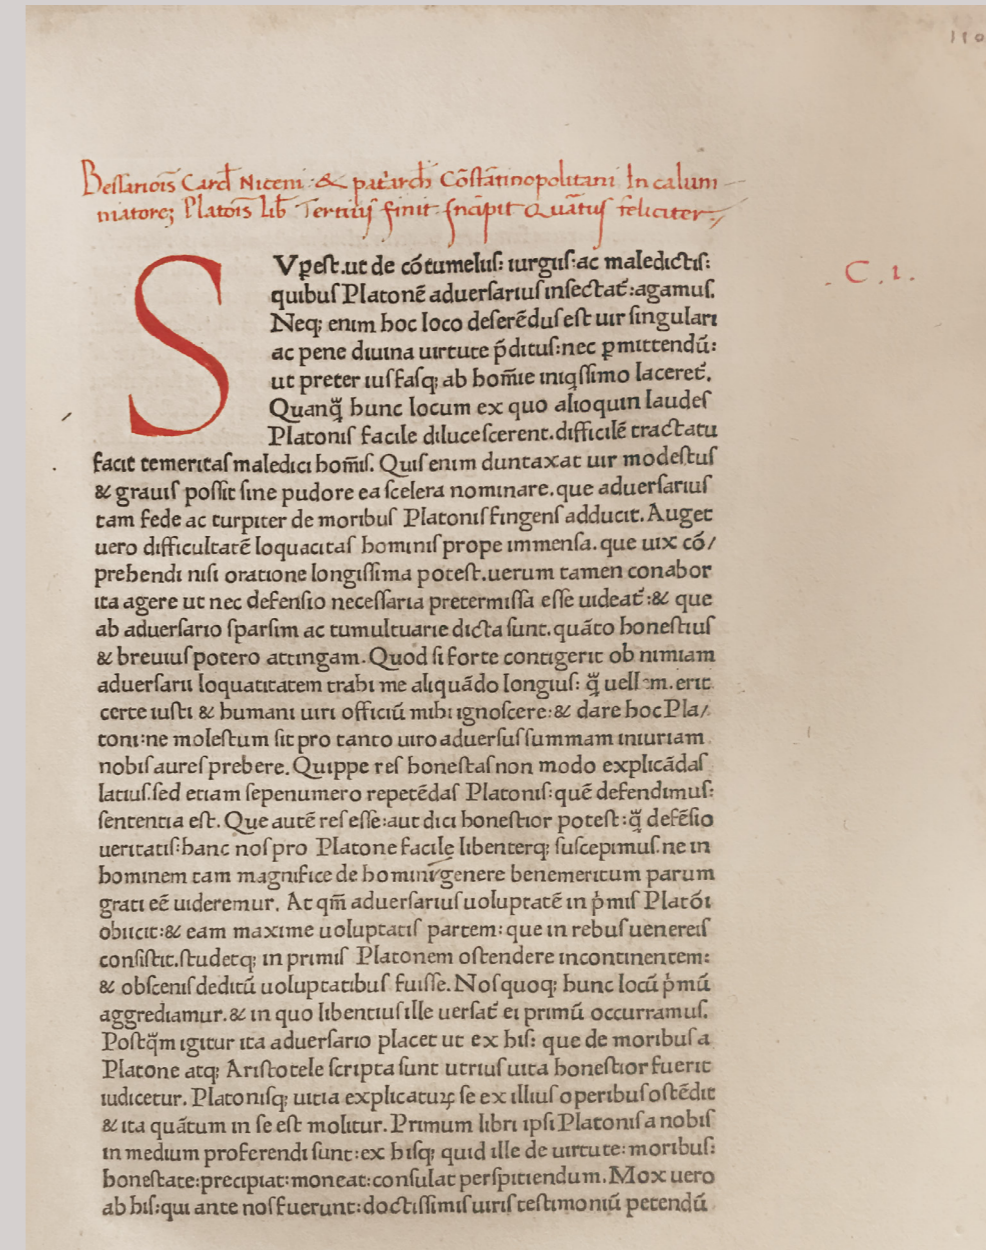 110
Bessariōis Card̄ Niceni · & patriarch̄ Cōstātinopolitani In calum
niatorez Platōis lib̄ Tertiꝰ finit Incipit Quātus feliciter
C. 1.
SVꝑest. ut de cōtumeliis: iurgiis: ac maledictis:
quibus Platonē aduersarius insectat̄: agamus.
Neq; enim hoc loco deserēdus est uir singulari
ac pene diuina uirtute p̄ditus: nec ꝑmittendū:
ut preter ius fasq; ab hom̄ie iniqssimo laceret̄.
Quanq̄ hunc locum ex quo alioquin laudes
Platonis facile dilucescerent. difficilē tractatu
facit temeritas maledici hom̄is. Quis enim duntaxat uir modestus
& grauis possit sine pudore ea scelera nominare. que aduersarius
tam fede ac turpiter de moribus Platonis fingens adducit. Auget
uero difficultatē loquacitas hominis prope immensa. que uix cō/
prehendi nisi oratione longissima potest. uerum tamen conabor
ita agere ut nec defensio necessaria pretermissa esse uideat̄: & que
ab aduersario sparsim ac tumultuarie dicta sunt. quāto honestius
& breuius potero attingam. Quod si forte contigerit ob nimiam
aduersarii loquatitatem trahi me aliquādo longius: q̄ uellem. erit
certe iusti & humani uiri officiū mihi ignoscere: & dare hoc Pla/
toni: ne molestum sit pro tanto uiro aduersus summam iniuriam
nobis aures prebere. Quippe res honestas non modo explicādas
latius. sed etiam sepenumero repetēdas Platonis: quē defendimus:
sententia est. Que autē res esse: aut dici honestior potest: q̄ defēsio
ueritatis: hanc nos pro Platone facile libenterq; suscepimus. ne in
hominem tam magnifice de hominū genere benemeritum parum
grati eē uideremur. At qm̄ aduersarius uoluptatē in p̄mis Platōi
obiicit: & eam maxime uoluptatis partem: que in rebus uenereis
consistit. studetq; in primis Platonem ostendere incontinentem:
& obscenis deditū uoluptatibus fuisse. Nos quoq; hunc locū p̄mū
aggrediamur. & in quo libentius ille uersat̄ ei primū occurramus.
Postq̄m igitur ita aduersario placet ut ex his: que de moribus a
Platone atq; Aristotele scripta sunt utrius uita honestior fuerit
iudicetur. Platonisq; uitia explicatuꝝ se ex illius operibus ostēdit
& ita quātum in se est molitur. Primum libri ipsi Platonis a nobis
in medium proferendi sunt: ex hisq; quid ille de uirtute: moribus:
honestate: precipiat: moneat: consulat perspitiendum. Mox uero
ab his: qui ante nos fuerunt: doctissimis uiris testimoniū petendū